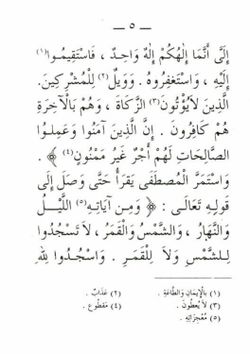 — ٥ —
إِلَيَّ أَنَّمَا إِلَهُكُمْ إِلَهٌ وَاحِدٌ ، فَاسْتَقِيمُوا (١)
إِلَيْهِ ، وَاسْتَغْفِرُوهُ . وَوَيْلٌ (٢) لِلْمُشْرِكِينَ .
الَّذِينَ لَا يُؤْتُونَ (٣) الزَّكَاةَ ، وَهُمْ بِالْآخِرَةِ
هُمْ كَافِرُونَ . إِنَّ الَّذِينَ آمَنُوا وَعَمِلُوا
الصَّالِحَاتِ لَهُمْ أَجْرٌ غَيْرُ مَمْنُونٍ (٤) ﴾ .
وَاسْتَمَرَّ الْمُصْطَفَى يَقْرَأُ حَتَّى وَصَلَ إِلَى
قَوْلِهِ تَعَالَى : ﴿ وَمِنْ آيَاتِهِ (٥) اللَّيْلُ
وَالنَّهَارُ ، وَالشَّمْسُ وَالْقَمَرُ ، لَا تَسْجُدُوا
لِلشَّمْسِ وَلَا لِلْقَمَرِ . وَاسْجُدُوا لِلَّهِ
(١) بِالْإِيمَانِ وَالطَّاعَةِ . (٢) عَذَابٌ .
(٣) لَا يُعْطُونَ . (٤) مَقْطُوعٍ .
(٥) مُعْجِزَاتِهِ .